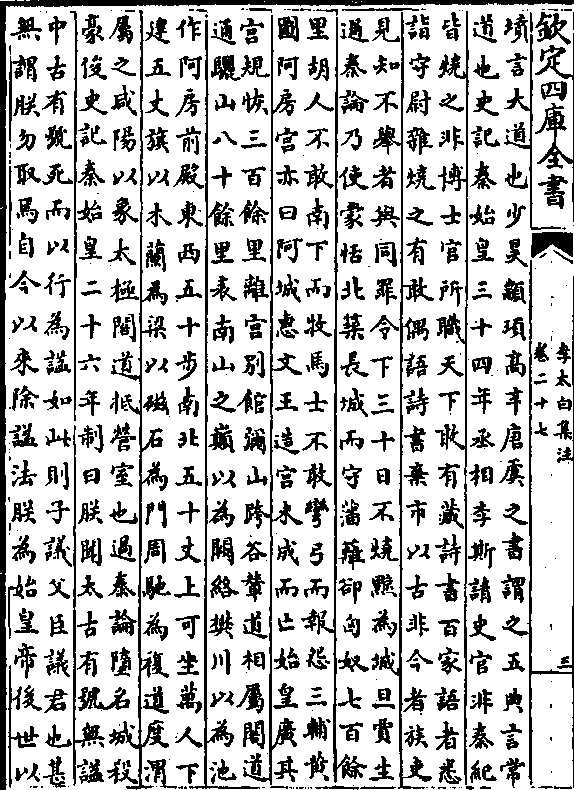 欽定四庫全書
李太白集注
卷二十七
三
墳言大道也少昊顓頊髙辛唐虞之書謂之五典言常
道也史記秦始皇三十四年丞相李斯請史官非秦紀
皆燒之非博士官所職天下敢有藏詩書百家語者悉
詣守尉雜燒之有敢偶語詩書棄市以古非今者族吏
見知不舉者與同罪令下三十日不燒黥為城旦賈生
過秦論乃使蒙恬北築長城而守藩籬卻匈奴七百餘
里胡人不敢南下而牧馬士不敢彎弓而報怨三輔黃
圖阿房宫亦曰阿城惠文王造宫未成而亡始皇廣其
宫規恢三百餘里離宫别館彌山跨谷輦道相屬閣道
通驪山八十餘里表南山之巔以為闕絡樊川以為池
作阿房前殿東西五十步南北五十丈上可坐萬人下
建五丈旗以木蘭為梁以磁石為門周馳為複道度渭
屬之咸陽以象太極閣道抵營室也過秦論墮名城殺
豪俊史記秦始皇二十六年制曰朕聞太古有號無諡
中古有號死而以行為諡如此則子議父臣議君也甚
無謂朕勿取焉自今以來除諡法朕為始皇帝後世以